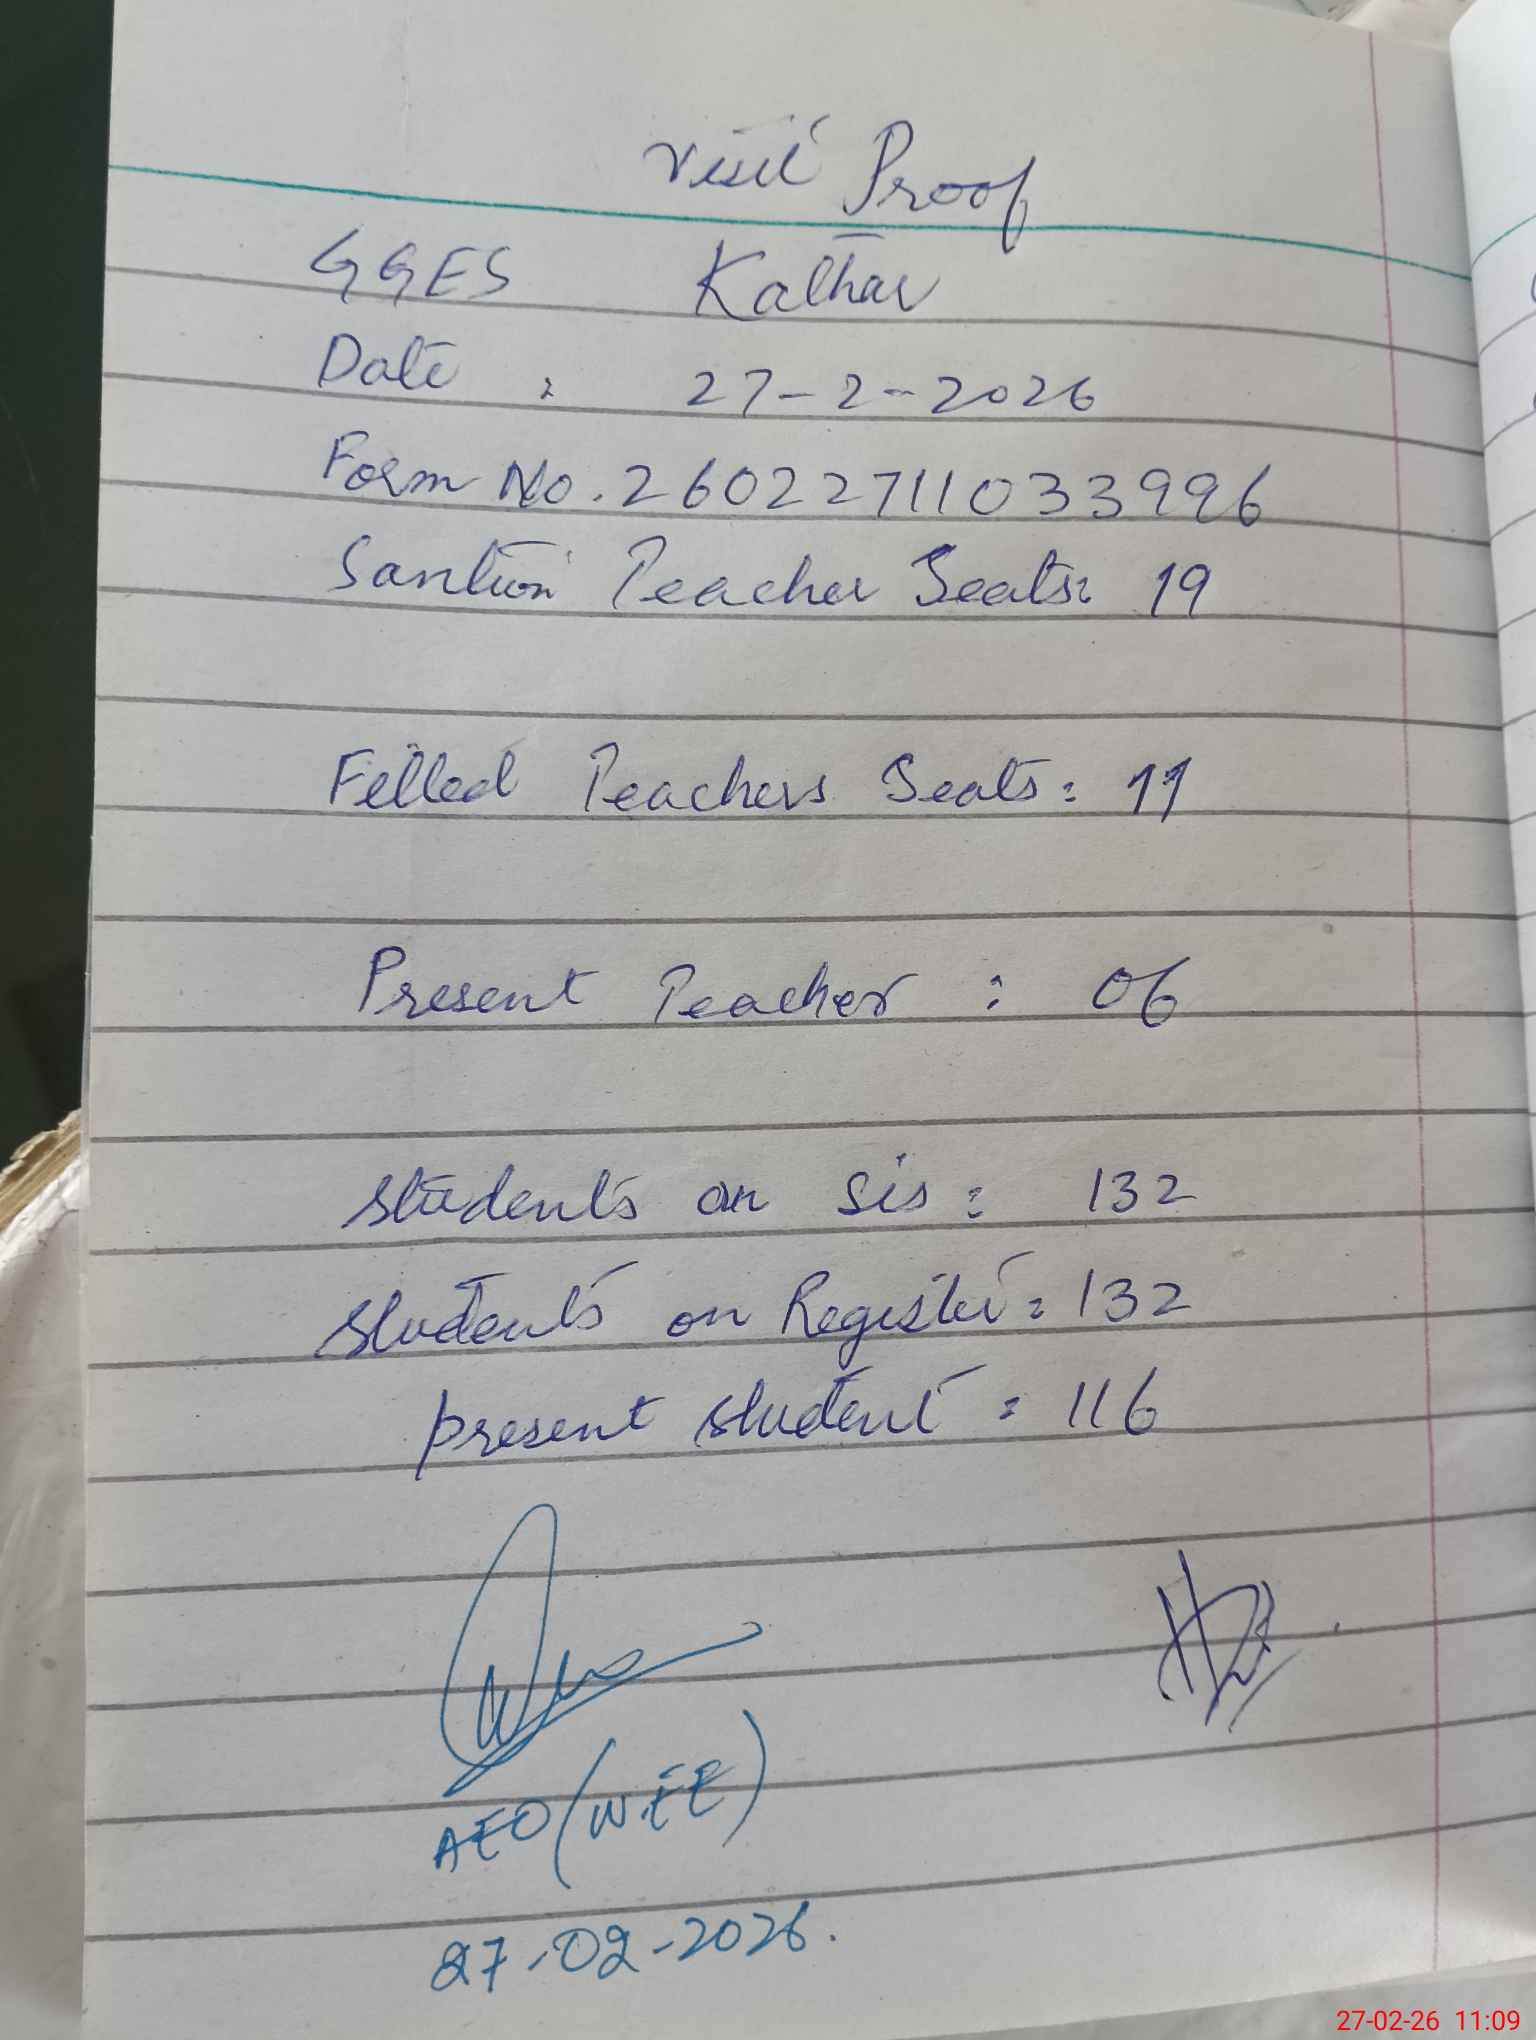 Visit Proof
GGES Kathar
Date : 27-2-2026
Form No. 26022711033996
Santion Teacher Seats: 19
Filled Teachers Seats: 11
Present Teacher : 06
Students on sis : 132
Students on Register : 132
present student : 116
AEO (W.EE)
27-02-2026.
27-02-26 11:09